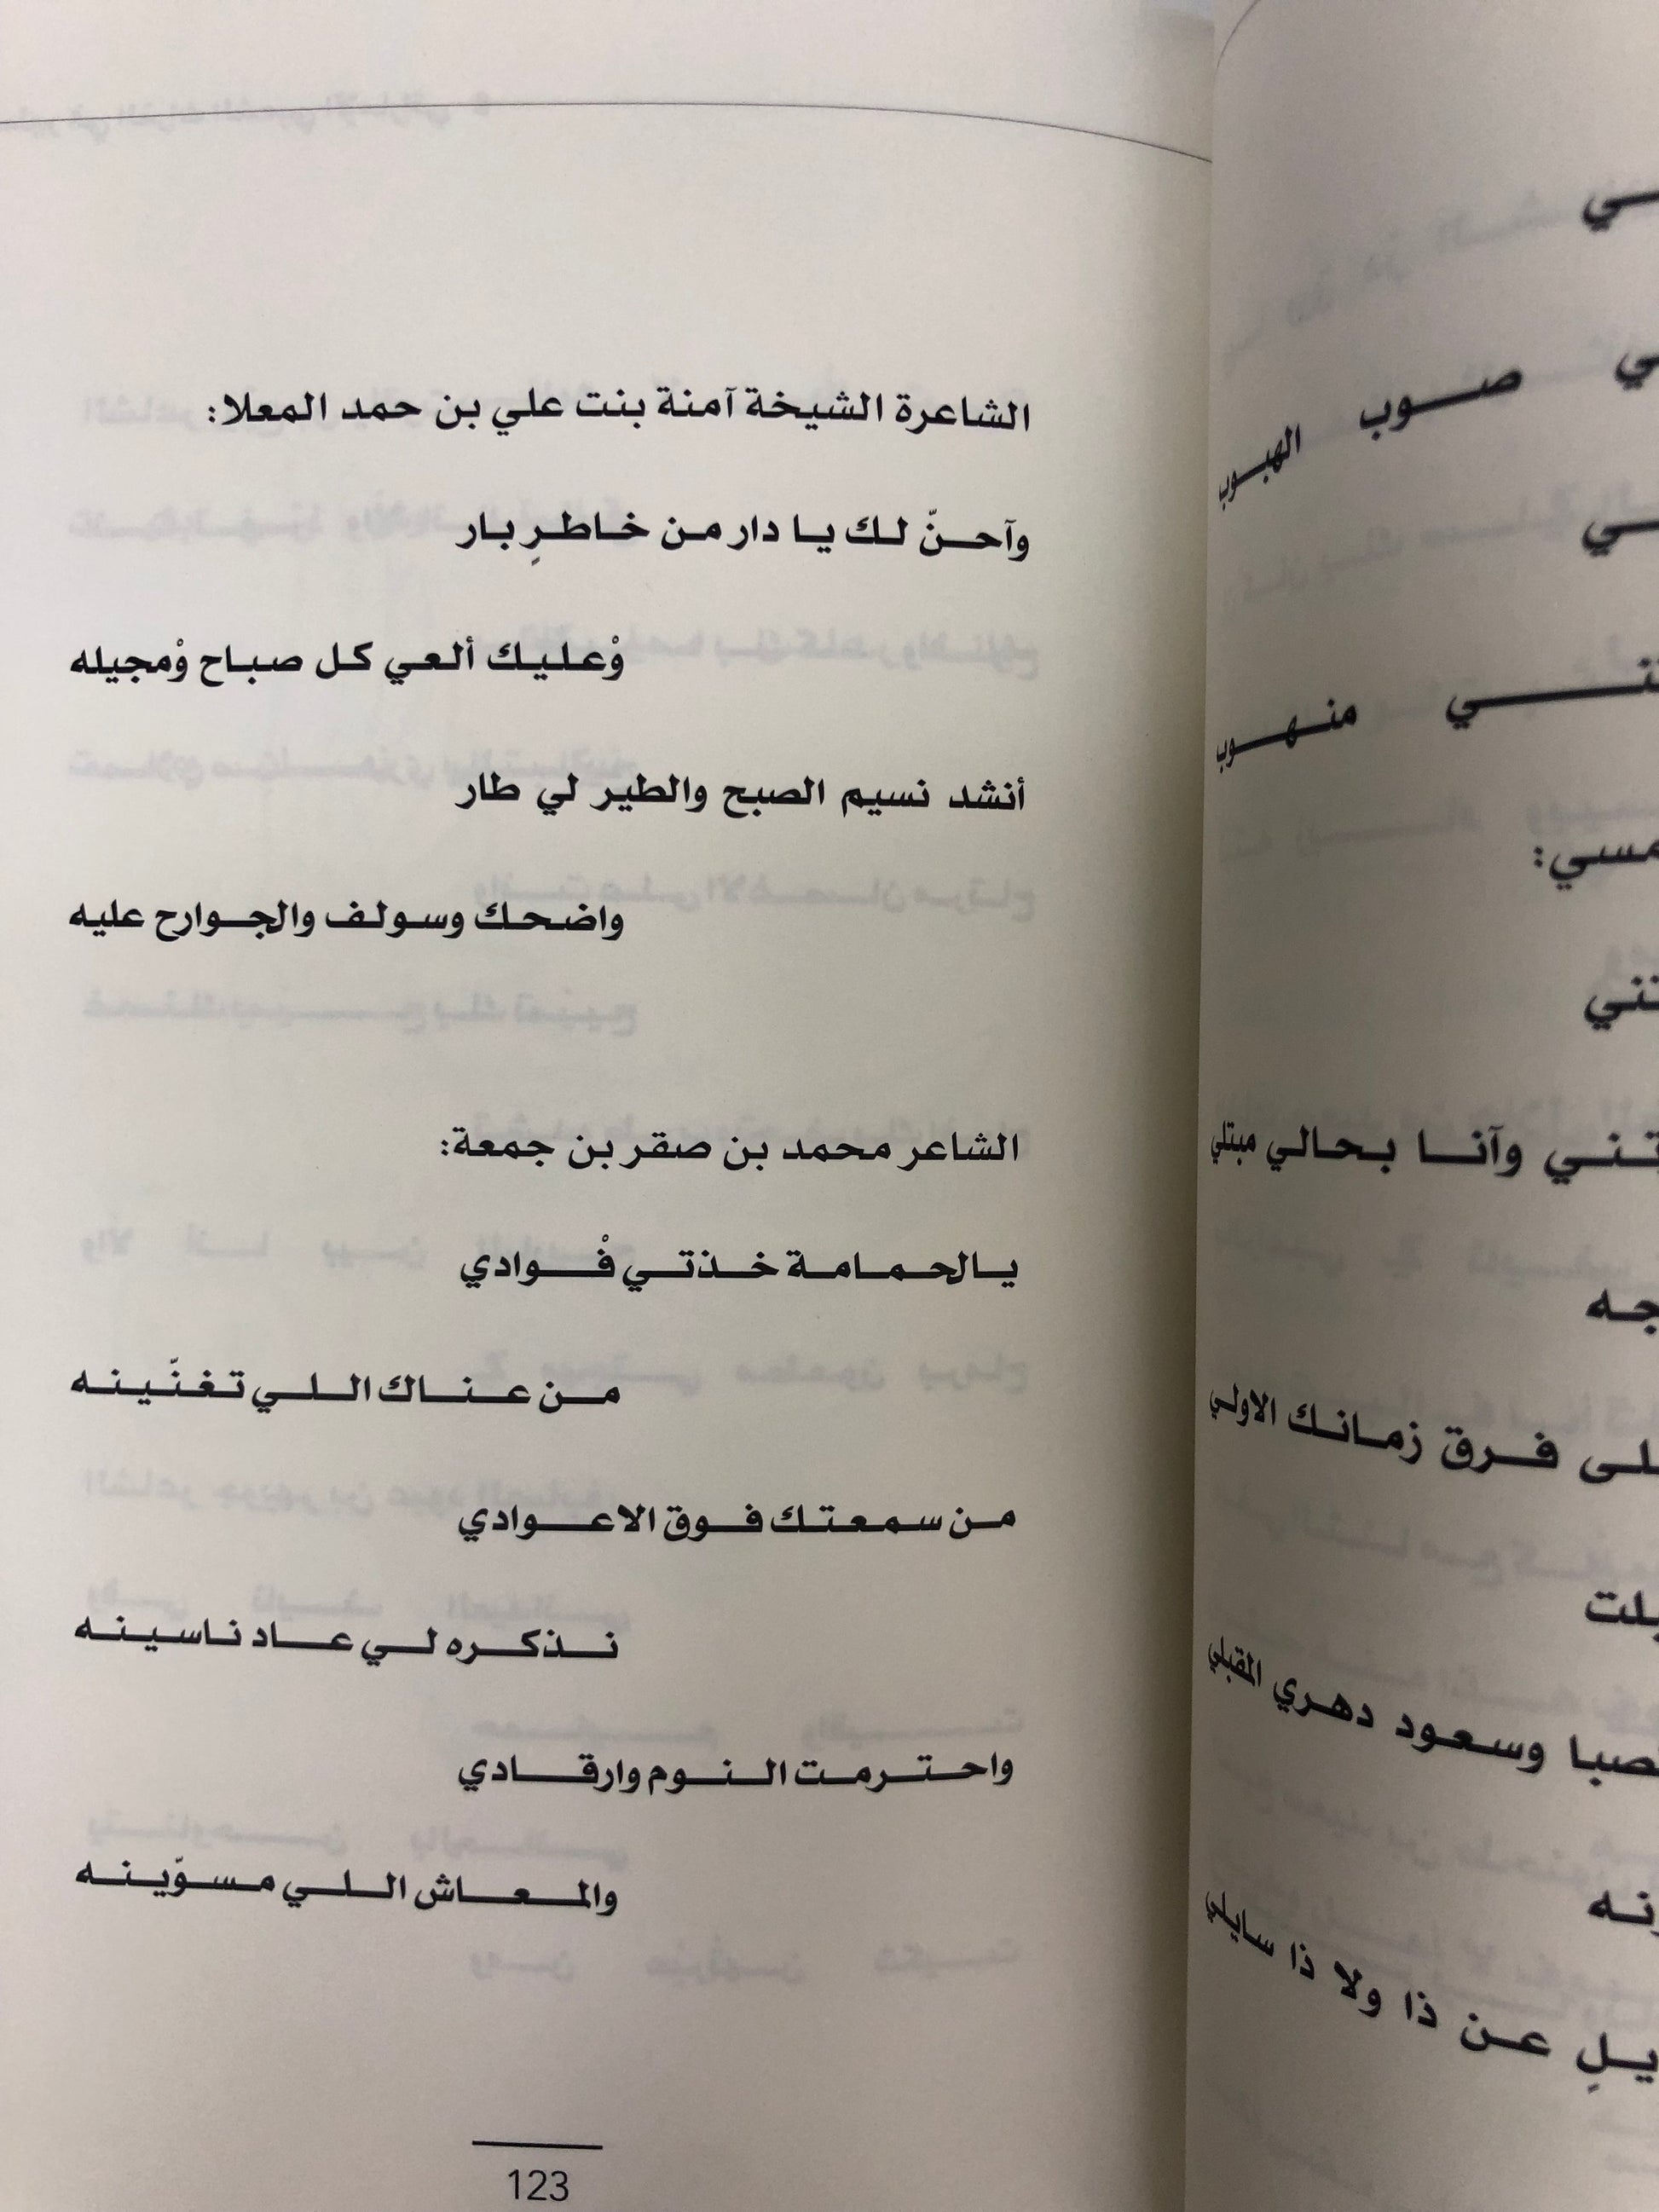 الشاعرة الشيخة آمنة بنت علي بن حمد المعلا:
وآحنّ لك يا دار من خاطرِ بار
وْعليك ألعي كل صباح وْمجيله
أنشد نسيم الصبح والطير لي طار
واضحك وسولف والجوارح عليه
الشاعر محمد بن صقر بن جمعة:
يالحمامة خذتي فْوادي
من عناك اللي تغنّينه
من سمعتك فوق الاعوادي
نذكره لي عاد ناسينه
واحترمت النوم وارقادي
والمعاش اللي مسوّينه
123
صوب الهبوب
منهوب
وآنا بحالي مبتلي
فرق زمانك الاولي
وسعود دهري المقبلي
عن ذا ولا ذا سايلي